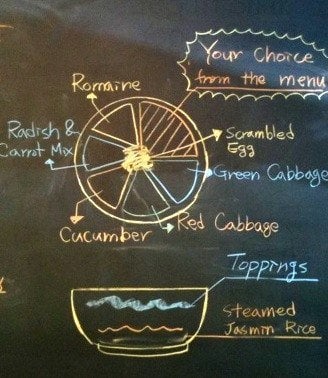 Your Choice
from the menu
Romaine
Radish &
Carrot Mix
Scrambled
Egg
Green Cabbage
Red Cabbage
Cucumber
Toppings
Steamed
Jasmin Rice